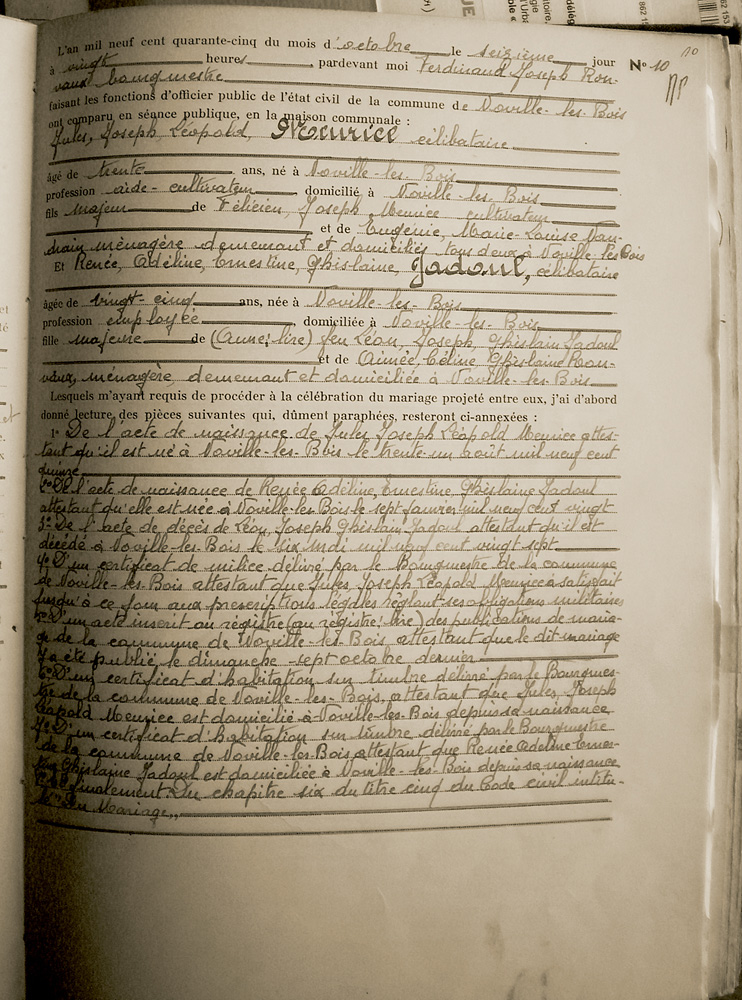 L'an mil neuf cent quarante-cinq du mois d'octobre le seizième jour
N° 10
à vingt heures, pardevant moi Ferdinand Joseph Ron-
vaux bourgmestre
faisant les fonctions d'officier public de l'état civil de la commune de Noville-les-Bois
ont comparu en séance publique, en la maison communale :
Jules, Joseph, Léopold, Meurice célibataire
âgé de trente ans, né à Noville-les-Bois
profession aide-cultivateur, domicilié à Noville-les-Bois
fils majeur de Félicien, Joseph Meurice cultivateur
et de Eugénie, Marie-Louise Van-
drain ménagère demeurant et domiciliés tous deux à Noville-les-Bois
Et Renée, Adeline, Ernestine, Ghislaine, Jadoul, célibataire
âgée de vingt-cinq ans, née à Noville-les-Bois
profession employée, domiciliée à Noville-les-Bois
fille majeure de (Aimé; lire) feu Léon, Joseph, Ghislain Jadoul
et de Aimée, Céline, Ghislaine Ron-
vaux, ménagère demeurant et domiciliée à Noville-les-Bois
Lesquels m'ayant requis de procéder à la célébration du mariage projeté entre eux, j'ai d'abord
donné lecture des pièces suivantes qui, dûment paraphées, resteront ci-annexées :
1° De l'acte de naissance de Jules Joseph Léopold Meurice attes-
tant qu'il est né à Noville-les-Bois le trente un août mil neuf cent
quinze
2° De l'acte de naissance de Renée Adeline, Ernestine, Ghislaine Jadoul
attestant qu'elle est née à Noville-les-Bois le sept janvier mil neuf cent vingt
3° De l'acte de décès de Léon, Joseph Ghislain Jadoul attestant qu'il est
décédé à Noville-les-Bois le six mai mil neuf cent vingt sept
4° D'un certificat de milice délivré par le Bourgmestre de la commune
de Noville-les-Bois attestant que Jules, Joseph Léopold Meurice a satisfait
jusqu'à ce jour aux prescriptions légales réglant ses obligations militaires
5° D'un acte inscrit au régistre (au régistre: lire) des publications de maria-
ge de la commune de Noville-les-Bois, attestant que le dit mariage
y a été publié, le dimanche sept octobre dernier
6° D'un certificat d'habitation sur timbre délivré par le Bourgmes-
tre de la commune de Noville-les-Bois, attestant que Jules, Joseph
Léopold Meurice est domicilié à Noville-les-Bois depuis sa naissance
7° D'un certificat d'habitation sur timbre délivré par le Bourgmestre
de la commune de Noville-les-Bois, attestant que Renée Adeline Ernes-
tine Ghislaine Jadoul est domiciliée à Noville-les-Bois depuis sa naissance
8° Et finalement du chapitre six du titre cinq du Code civil intitu-
lé "Du Mariage"